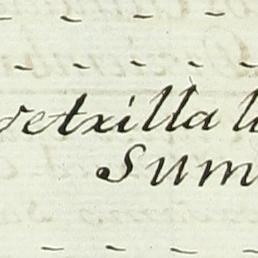 vetxilla l
Sum